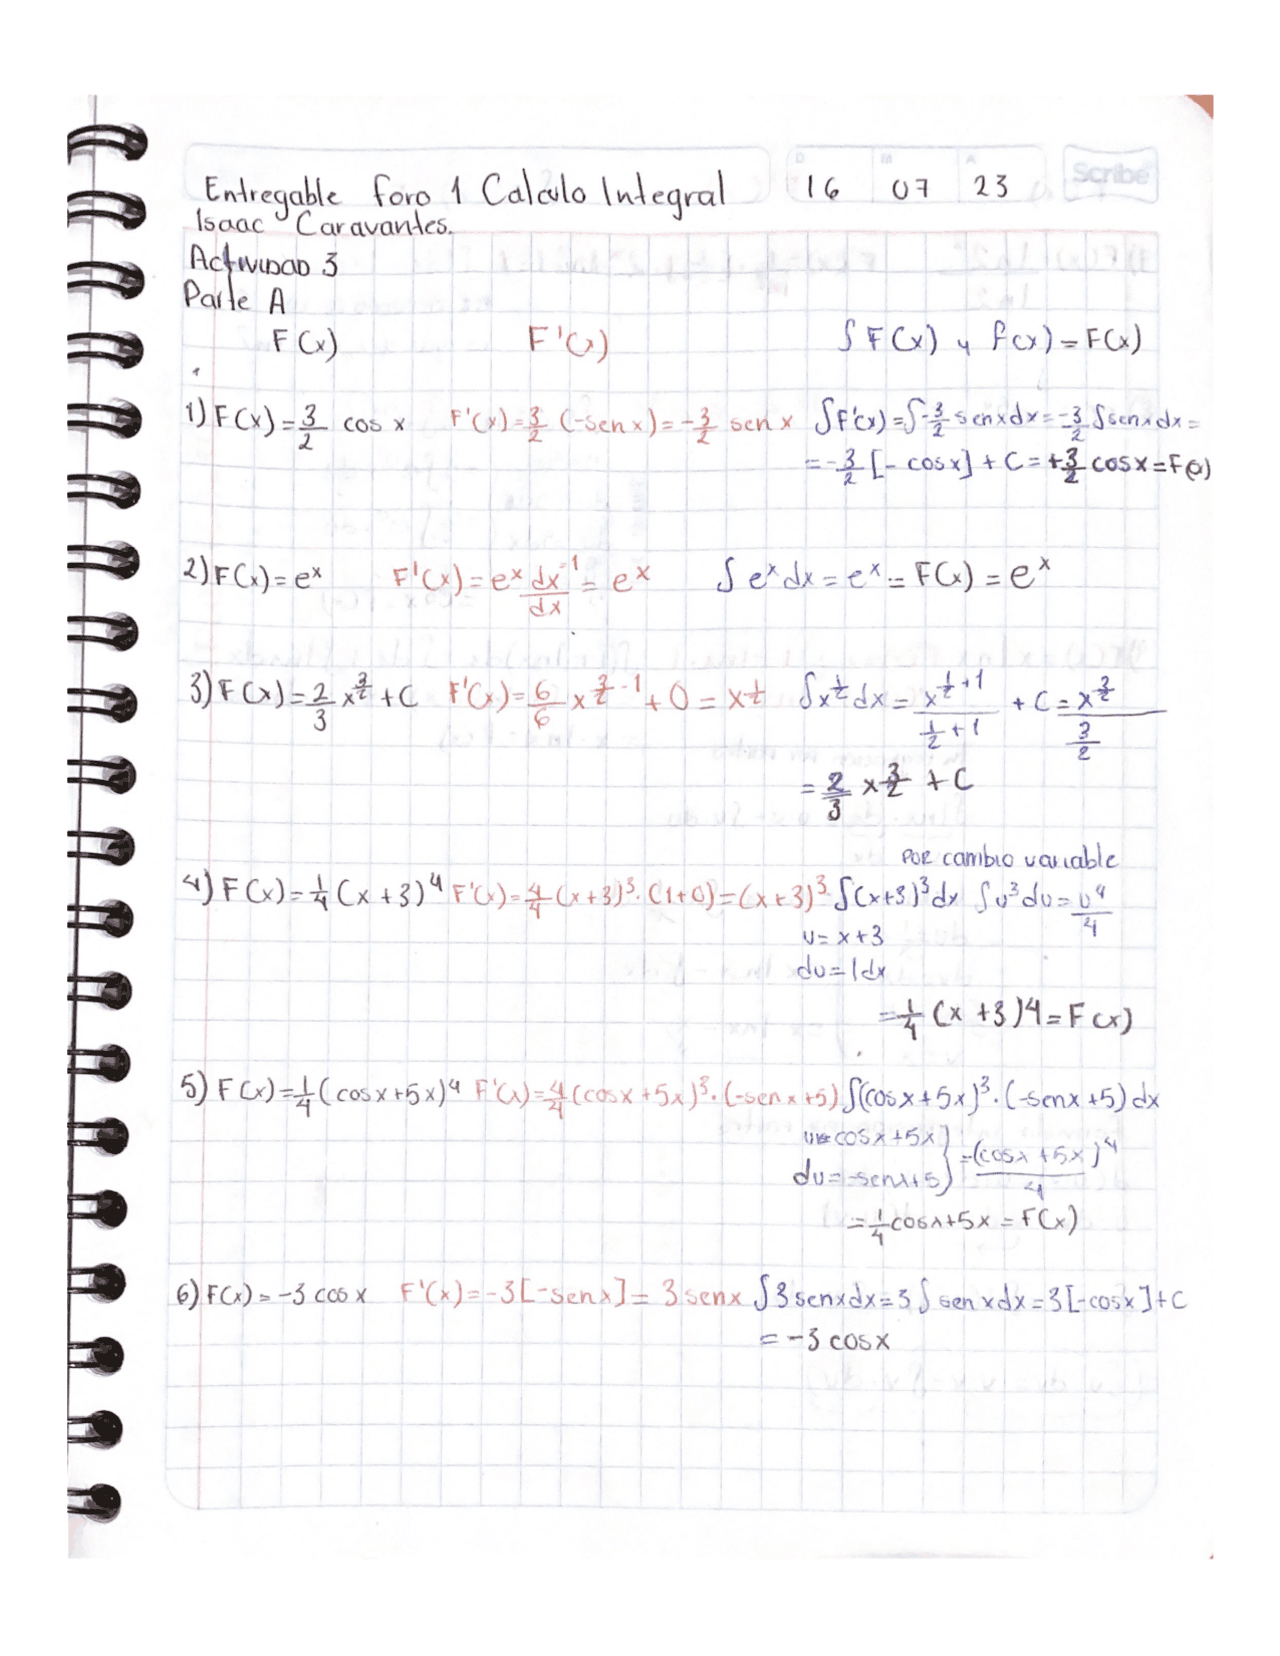 D M A
Entregable foro 1 Calculo Integral 16 07 23 Scribe
Isaac Caravantes.
Actividad 3
Parte A
F(x) F'(x) ∫ F(x) y f(x) = F(x)
1) F(x) = 3/2 cos x F'(x) = 3/2 (-sen x) = -3/2 sen x ∫F'(x) = ∫-3/2 senxdx = -3/2 ∫senxdx =
= -3/2 [- cosx] + C = +3/2 cosx = F(x)
2) F(x) = e^x F'(x) = e^x dx/dx ^1 = e^x ∫ e^x dx = e^x = F(x) = e^x
3) F(x) = 2/3 x^(3/2) + C F'(x) = 6/6 x^(3/2 - 1) + 0 = x^(1/2) ∫x^(1/2) dx = x^(1/2 + 1)/(1/2 + 1) + C = x^(3/2)/(3/2)
= 2/3 x^(3/2) + C
Por cambio variable
4) F(x) = 1/4 (x + 3)^4 F'(x) = 4/4 (x+3)^3 · (1+0) = (x+3)^3 ∫(x+3)^3 dx ∫u^3 du = u^4/4
u = x+3
du = 1dx
= 1/4 (x + 3)^4 = F(x)
5) F(x) = 1/4 (cosx+5x)^4 F'(x) = 4/4 (cosx+5x)^3 · (-senx+5) ∫(cosx+5x)^3 · (-senx+5) dx
u = cosx+5x } = (cosx+5x)^4/4
du = -senx+5
= 1/4 cosx+5x = F(x)
6) F(x) = -3 cos x F'(x) = -3[-senx] = 3 senx ∫3 senxdx = 3 ∫ senxdx = 3[-cosx]+C
= -3 cosx